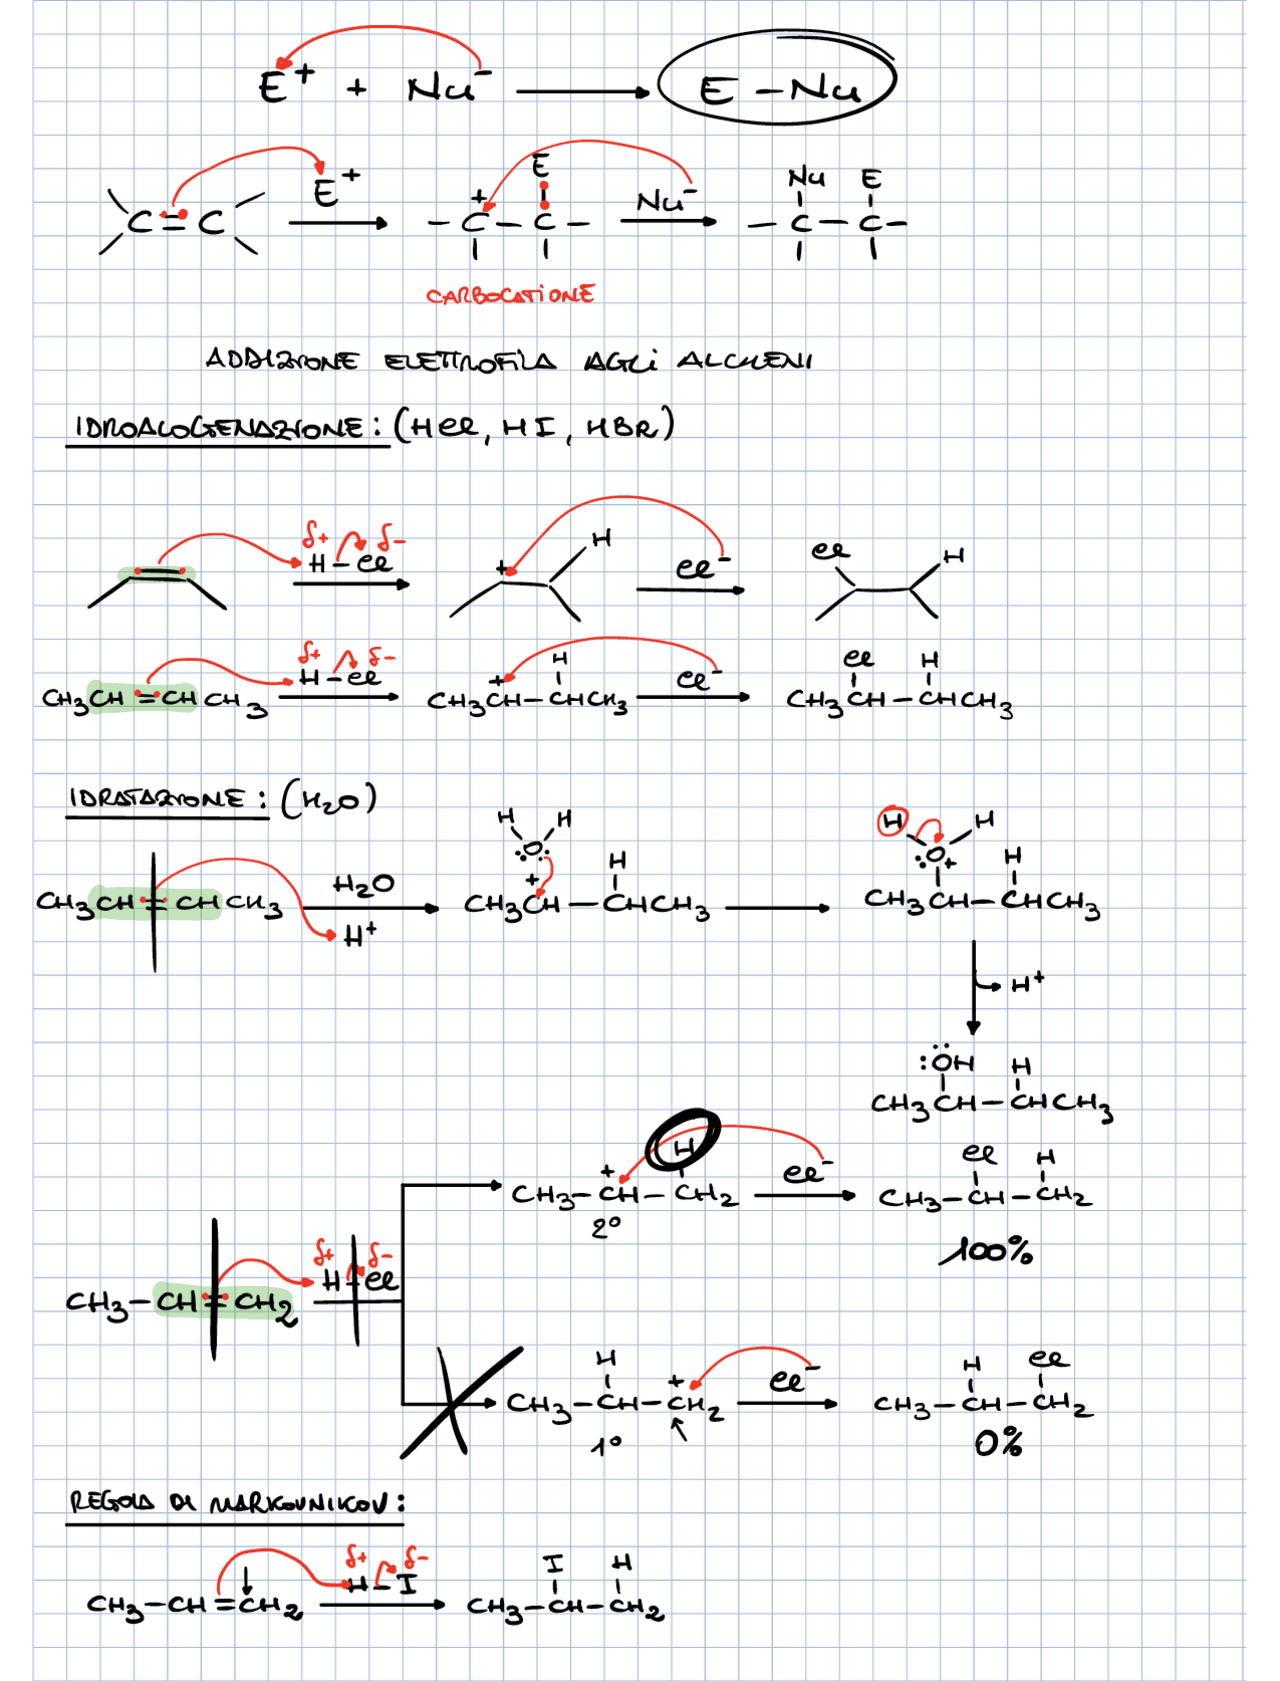 E⁺ + Nu⁻ → E – Nu
C = C E⁺ → – C⁺ – C – E Nu⁻ → – C – C – Nu E
CARBOCATIONE
ADDIZIONE ELETTROFILA AGLI ALCHENI
IDROALOGENAZIONE: (HCl, HI, HBR)
δ+ H – Cl δ- → + H Cl⁻ → Cl H
CH₃CH = CHCH₃ δ+ H – Cl δ- → CH₃C⁺H – CHCH₃ H Cl⁻ → CH₃CH – CHCH₃ Cl H
IDRATAZIONE: (H₂O)
CH₃CH = CHCH₃ H₂O H⁺ → H H :O: CH₃C⁺H – CHCH₃ H → H H :O⁺ CH₃CH – CHCH₃ H
H⁺
:ÖH H
CH₃CH – CHCH₃
CH₃–C⁺H – CH₂ H 2° Cl⁻ → CH₃–CH–CH₂ Cl H
100%
CH₃–CH = CH₂ δ+ H – Cl δ-
CH₃–CH–C⁺H₂ H 1° Cl⁻ → CH₃–CH–CH₂ H Cl
0%
REGOLA DI MARKOVNIKOV:
CH₃–CH=CH₂ δ+ H – I δ- → CH₃–CH–CH₂ I H